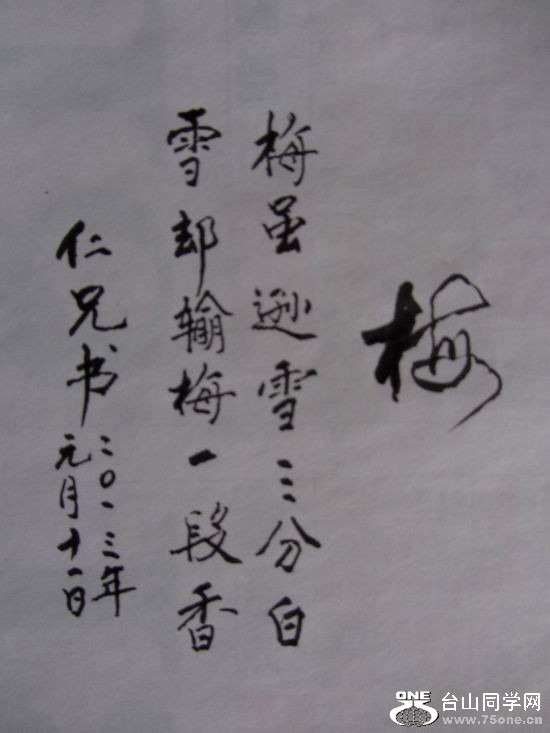 梅
梅虽逊雪三分白
雪却输梅一段香
仁兄书
二〇一三年
元月十一日
ONE
台山同学网
www.75one.cn